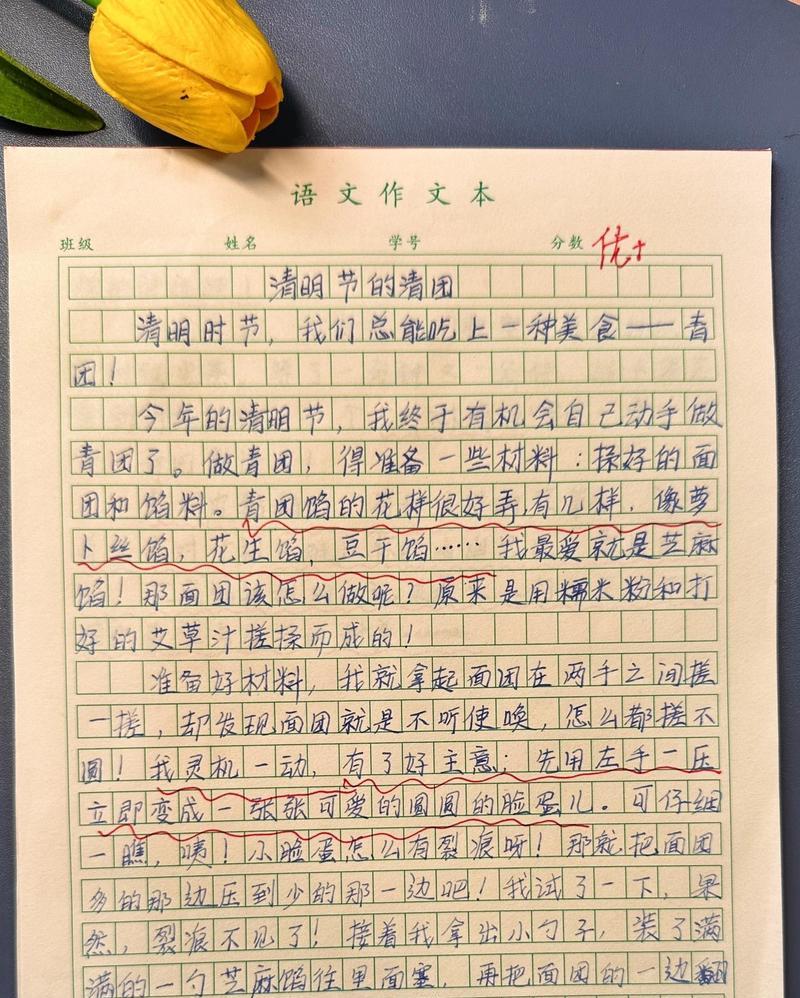 语文作文本
班级 姓名 学号 分数 优+
清明节的清团
清明时节，我们总能吃上一种美食——青
团！
今年的清明节，我终于有机会自己动手做
青团了。做青团，得准备一些材料：揉好的面
团和馅料。青团馅的花样很好弄，有几样，像萝
卜丝馅，花生馅，豆干馅……我最爱就是芝麻
馅！那面团该怎么做呢？原来是用糯米粉和打
好的艾草汁搓揉而成的！
准备好材料，我就拿起面团在两手之间搓
一搓，却发现面团就是不听使唤，怎么都搓不
圆！我灵机一动，有了好主意：先用左手一压
立即变成一张张可爱的圆圆的脸蛋儿。可仔细
一瞧，咦！小脸蛋怎么有裂痕呀！那就把面团
多的那边压到少的那一边吧！我试了一下，果
然，裂痕不见了！接着我拿出小勺子，装了满
满的一勺芝麻馅往里面塞，再把面团的一边翻